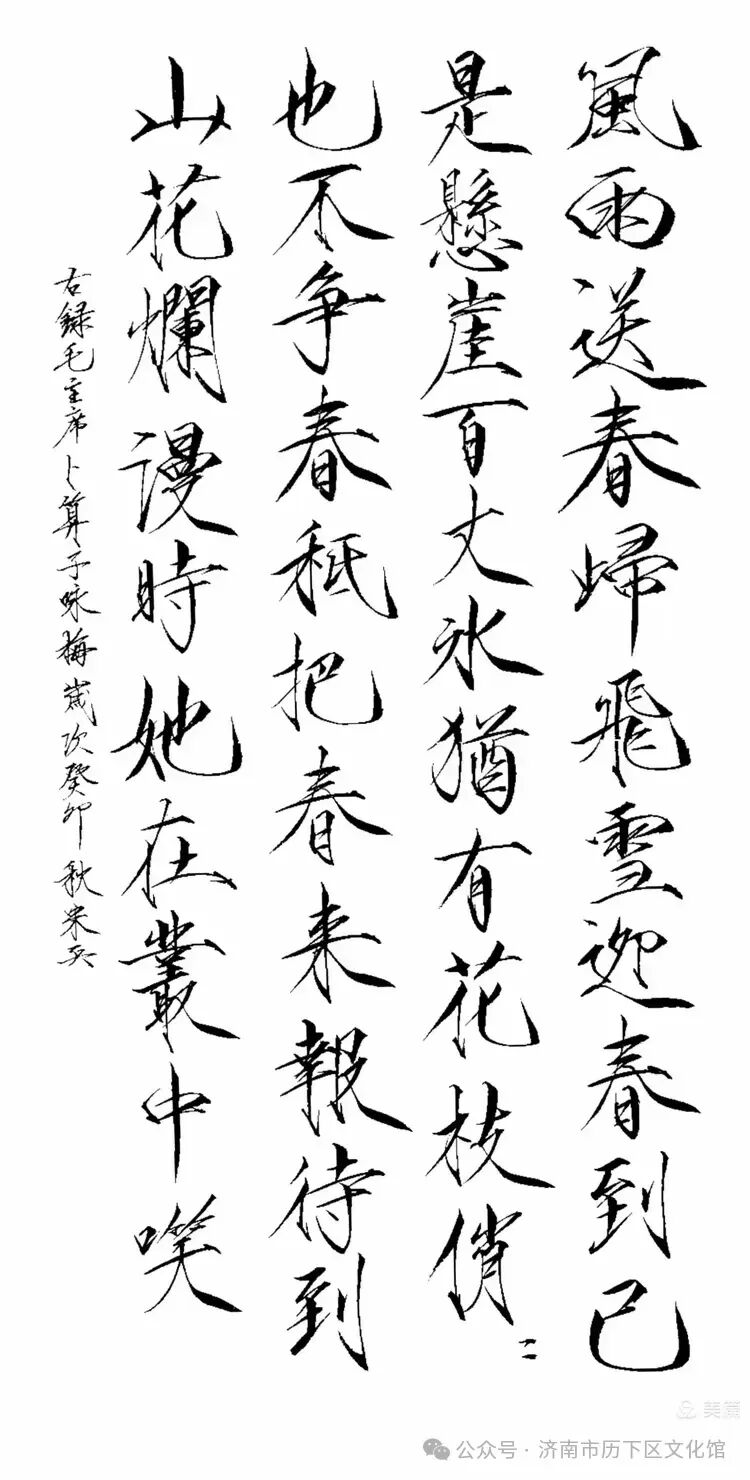 風雨送春歸飛雪迎春到已
是懸崖百丈氷猶有花枝俏〻
也不争春秖把春来報待到
山花爛謾時她在叢中笑
右録毛主席卜算子咏梅歲次癸卯秋宋兵
美篇
公众号 · 济南市历下区文化馆